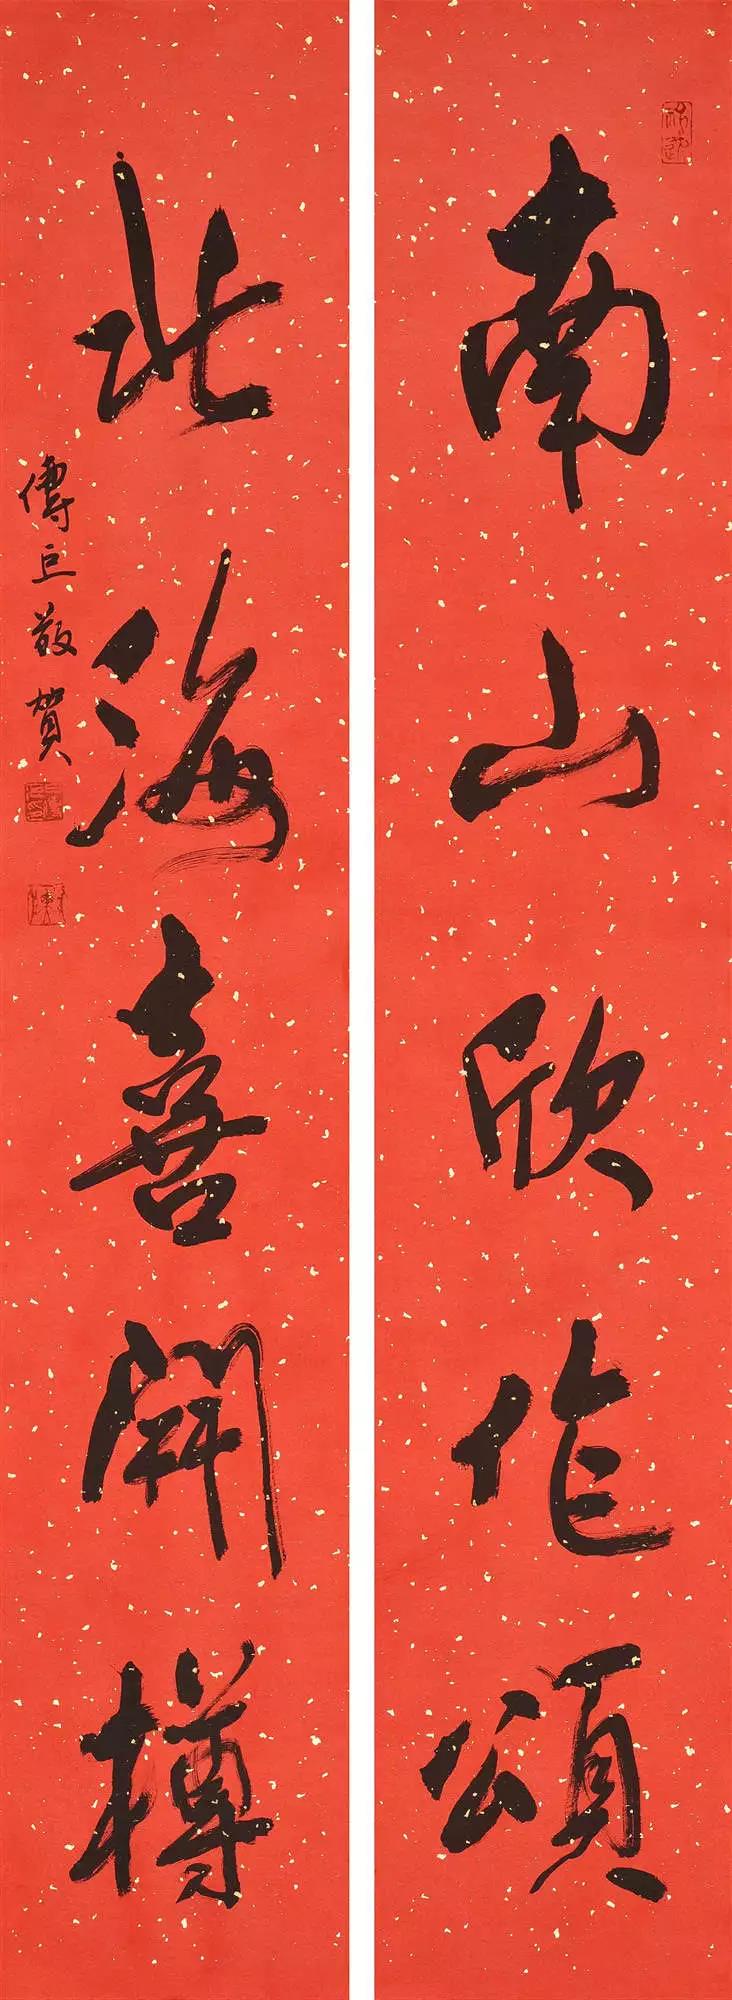 南山欣作頌
北海喜開樽
傅巨敬賀